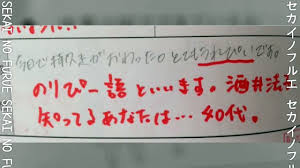 今日で持久走がおわった。とてもうれぴいです。
のりぴー語といいます。酒井法子
知ってるあなたは…40代。
SEKAI NO FURUE SEKAI NO FU
セカイノフルエ セカイノフ